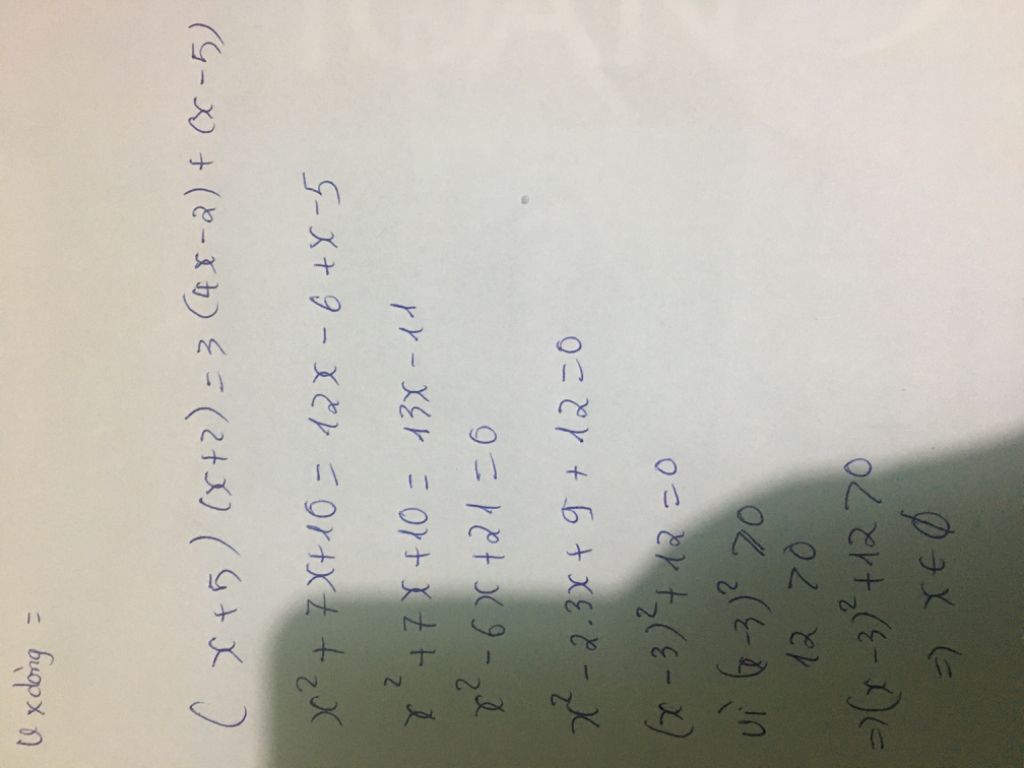 x dòng =
(x+5)(x+2) = 3(4x-2) + (x-5)
x² + 7x + 10 = 12x - 6 + x - 5
x² + 7x + 10 = 13x - 11
x² - 6x + 21 = 0
x² - 2.3x + 9 + 12 = 0
(x-3)² + 12 = 0
vì (x-3)² ⩾ 0
12 > 0
=> (x-3)² + 12 > 0
=> x ∈ ∅